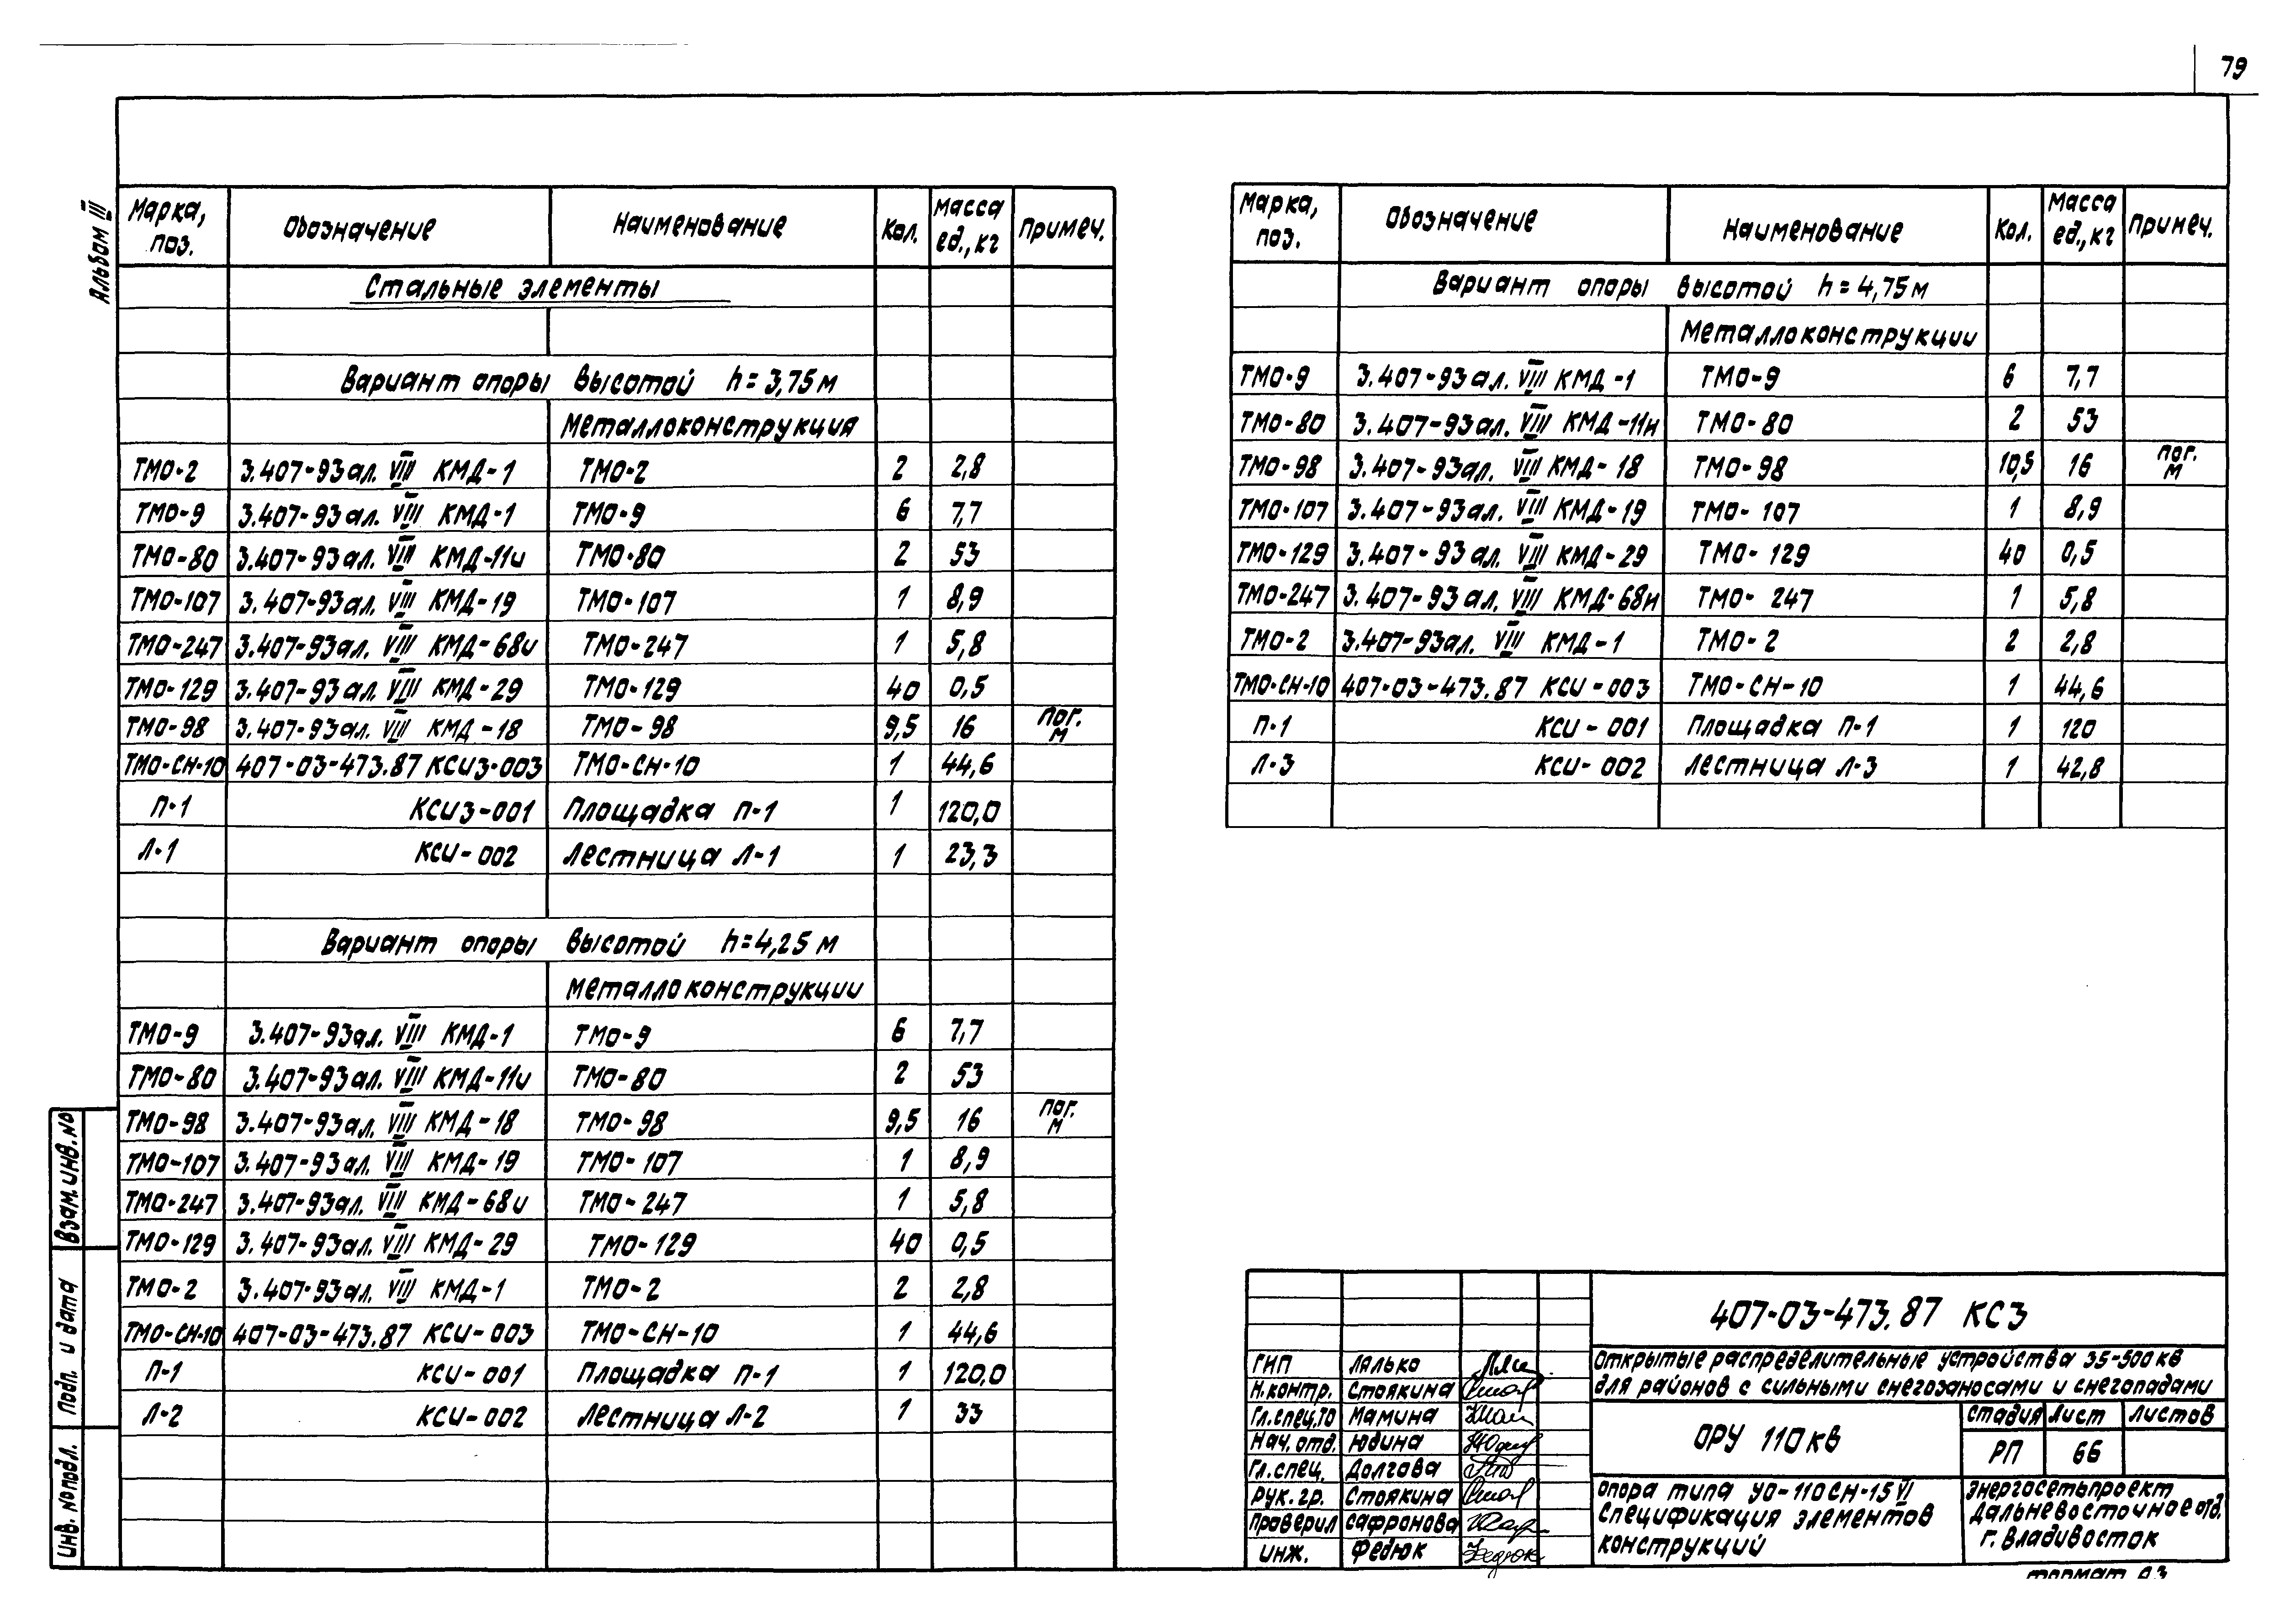 79
Альбом III
Марка, поз. Обозначение Наименование Кол. Масса ед., кг Примеч.
Стальные элементы
Вариант опоры высотой h=3,75м
Металлоконструкция
ТМО-2 3.407-93ал. VIII КМД-1 ТМО-2 2 2,8
ТМО-9 3.407-93ал. VIII КМД-1 ТМО-9 6 7,7
ТМО-80 3.407-93ал. VIII КМД-11и ТМО-80 2 53
ТМО-107 3.407-93ал. VIII КМД-19 ТМО-107 1 8,9
ТМО-247 3.407-93ал. VIII КМД-68и ТМО-247 1 5,8
ТМО-129 3.407-93ал VIII КМД-29 ТМО-129 40 0,5
ТМО-98 3.407-93ал. VIII КМД-18 ТМО-98 9,5 16 пог. м
ТМО-СН-10 407-03-473.87 КСИЗ-003 ТМО-СН-10 1 44,6
П-1 КСИЗ-001 Площадка П-1 1 120,0
Л-1 КСИ-002 Лестница Л-1 1 23,3
Вариант опоры высотой h=4,25м
Металлоконструкции
ТМО-9 3.407-93ал. VIII КМД-1 ТМО-9 6 7,7
ТМО-80 3.407-93ал. VIII КМД-11и ТМО-80 2 53
ТМО-98 3.407-93ал. VIII КМД-18 ТМО-98 9,5 16 пог. м
ТМО-107 3.407-93ал. VIII КМД-19 ТМО-107 1 8,9
ТМО-247 3.407-93ал. VIII КМД-68и ТМО-247 1 5,8
ТМО-129 3.407-93ал. VIII КМД-29 ТМО-129 40 0,5
ТМО-2 3.407-93ал. VIII КМД-1 ТМО-2 2 2,8
ТМО-СН-10 407-03-473.87 КСИ-003 ТМО-СН-10 1 44,6
П-1 КСИ-001 Площадка П-1 1 120,0
Л-2 КСИ-002 Лестница Л-2 1 33
Марка, поз. Обозначение Наименование Кол. Масса ед., кг Примеч.
Вариант опоры высотой h=4,75м
Металлоконструкции
ТМО-9 3.407-93ал. VIII КМД-1 ТМО-9 6 7,7
ТМО-80 3.407-93ал. VIII КМД-11и ТМО-80 2 53
ТМО-98 3.407-93ал. VIII КМД-18 ТМО-98 10,5 16 пог. м
ТМО-107 3.407-93ал. VIII КМД-19 ТМО-107 1 8,9
ТМО-129 3.407-93ал. VIII КМД-29 ТМО-129 40 0,5
ТМО-247 3.407-93ал. VIII КМД-68и ТМО-247 1 5,8
ТМО-2 3.407-93ал. VIII КМД-1 ТМО-2 2 2,8
ТМО-СН-10 407-03-473.87 КСИ-003 ТМО-СН-10 1 44,6
П-1 КСИ-001 Площадка П-1 1 120
Л-3 КСИ-002 Лестница Л-3 1 42,8
Взам. инв. №
Подп. и дата
Инв. № подл.
ГИП Лялько
Н.контр. Стоякина
Гл.спец.ТО Мамина
Нач. отд. Юдина
Гл.спец. Долгова
Рук. гр. Стоякина
Проверил Сафронова
Инж. Федюк
407-03-473.87 КС3
Открытые распределительные устройства 35-500кВ
для районов с сильными снегозаносами и снегопадами
ОРУ 110кВ
Стадия Лист Листов
РП 66
Опора типа УО-110СН-15 VI
Спецификация элементов
конструкций
Энергосетьпроект
Дальневосточное отд.
г. Владивосток
Формат А3